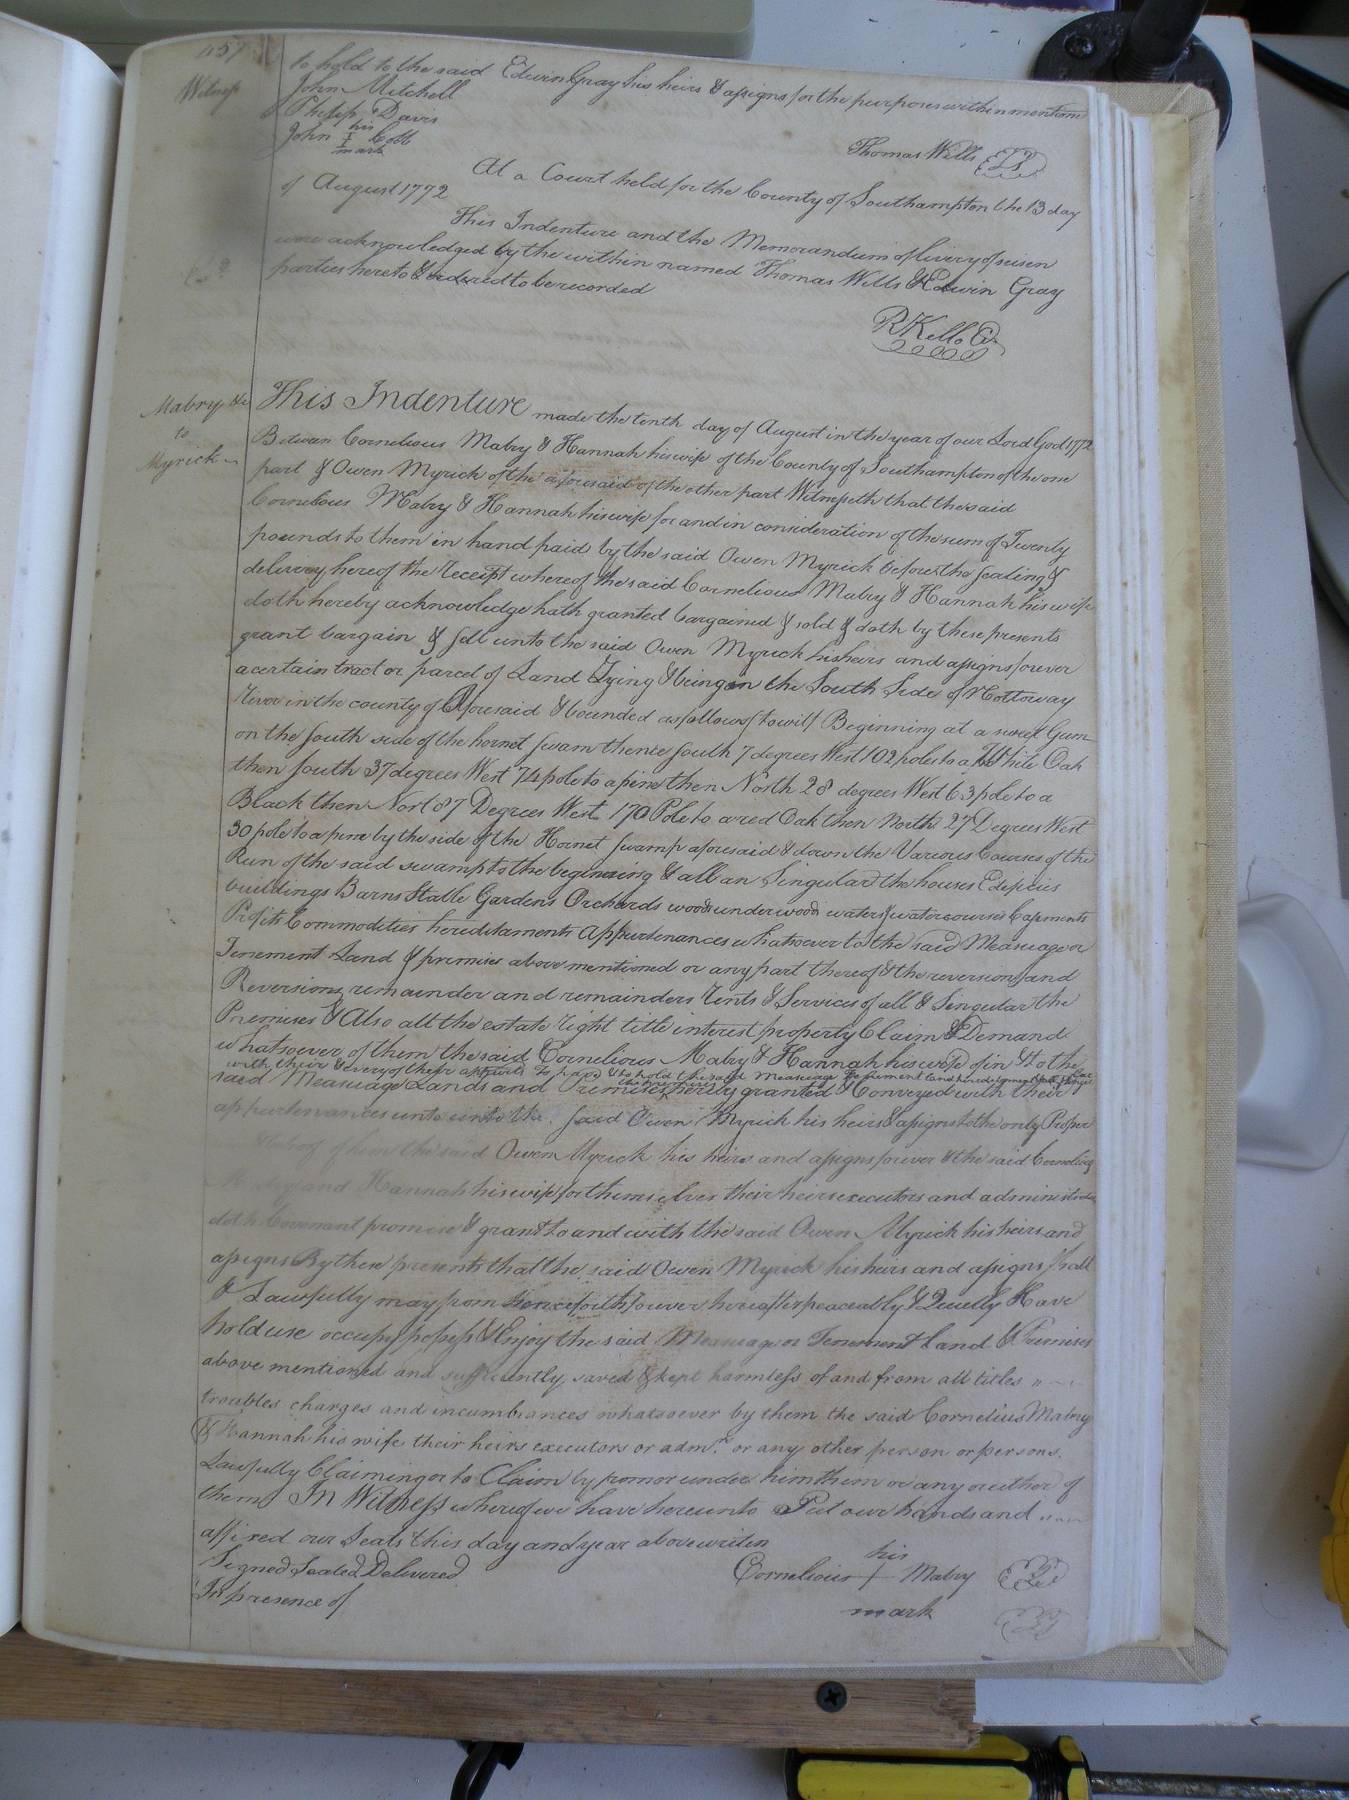 457
to hold to the said Edwin Gray his heirs & assigns for the purposes within mentiond
Witness
John Mitchell
Philip Davis
John his I mark Cobb
Thomas Wills LS
At a Court held for the County of Southampton the 13 day
of August 1772
This Indenture and the Memorandum of livery of seisen
were acknowledged by the within named Thomas Wills & Edwin Gray
parties hereto & ordered to be recorded
R Kello Cr.
Mabry &c
to
Myrick
This Indenture made the tenth day of August in the year of our Lord God 1772
Between Cornelious Mabry & Hannah his wife of the County of Southampton of the one
part & Owen Myrick of the aforesaid of the other part Witnesseth that the said
Cornelious Mabry & Hannah his wife for and in consideration of the sum of Twenty
pounds to them in hand paid by the said Owen Myrick before the sealing &
delivery hereof the receipt whereof the said Cornelious Mabry & Hannah his wife
doth hereby acknowledge hath granted bargained & sold & doth by these presents
grant bargain & sell unto the said Owen Myrick his heirs and assigns forever
a certain tract or parcel of Land Lying & being on the South Side of Nottoway
river in the county of Aforesaid & bounded as follows towit Beginning at a sweet Gum
on the south side of the hornet swam thence south 7 degrees West 102 poles to a White Oak
then south 37 degrees West 74 pole to a pine then North 28 degrees West 63 pole to a
Black then Nort 87 Degrees West 170 Pole to a red Oak then North 27 Degrees West
30 pole to a pine by the side of the Hornet swamp aforesaid & down the Various Courses of the
Run of the said swamp to the beginning & all an Singular the houses Edificies
buildings Barns Stable Gardens Orchards woods underwoods waters & watercourses Easments
Profits Commodities hereditaments Appurtenances whatsoever to the said Measuage or
Tenement Land & premises above mentioned or any part thereof & the reversion and
Reversions remainder and remainders rents & Services of all & Singular the
Premises & Also all the estate right title interest property Claim & Demand
whatsoever of them the said Cornelious Mabry & Hannah his wife of in & to the
with their & every of their to have & to hold the said Measuage Tenement Land
said Measuage Lands and Premises hereby granted & Conveyed with their
appurtenances unto unto the said Owen Myrick his heirs & assigns to the only Proper
of him the said Owen Myrick his heirs and assigns forever & the said Cornelius
Mabry and Hannah his wife for themselves their heirs executors and administrators
doth Covenant promise & grant to and with the said Owen Myrick his heirs and
assigns By these presents that the said Owen Myrick his heirs and assigns shall
& Lawfully may from henceforth forever hereafter peaceably & Quielly Have
hold use occupy possess & Enjoy the said Measuage or Tenement Land & Premises
above mentioned and sufficently saved & kept harmless of and from all titles
troubles charges and incumbrances whatsoever by them the said Cornelius Mabry
& Hannah his wife their heirs executors or admrs. or any other person or persons
Lawfully Claiming or to Claim by from or under him them or any or either of
them In Witness whereof we have hereunto Put our hands and
affixed our Seals this day and year above writen
Signed Sealed Delivered
In presence of
his
Cornelious + Mabry LS
mark
LS